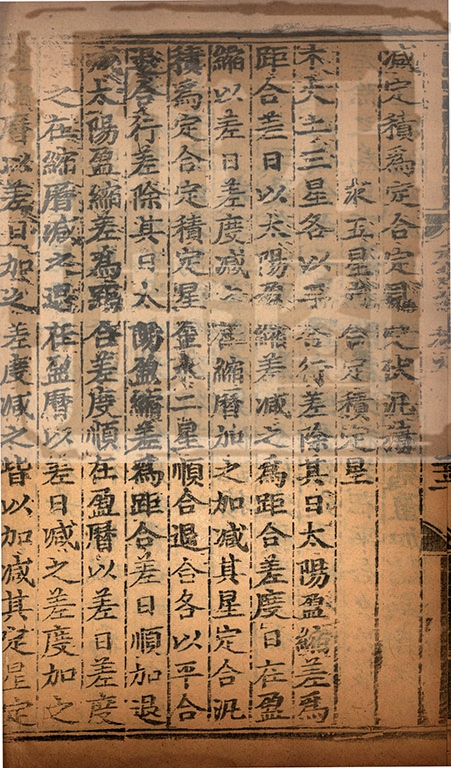 減定積為定合定見定伏汎積
求五星定合定積定星
木火土三星各以平合行差除其日太陽盈縮差為
距合差日以太陽盈縮差減之為距合差度日在盈
縮以差日差度減之在縮曆加之加減其星定合汎
積為定合定積定星金水二星順合退合各以平合
退合行差除其日太陽盈縮差為距合差日順加退
減太陽盈縮差為距合差度順在盈曆以差日差度
之在縮曆減之退在盈曆以差日減之差度加之
縮曆以差日加之差度減之皆以加減其定星定